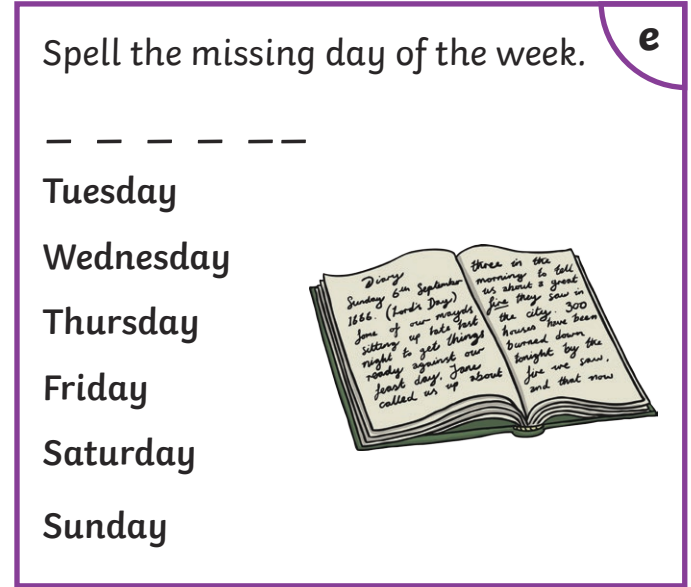 e
Spell the missing day of the week.
_ _ _ _ _ _
Tuesday
Wednesday
Thursday
Friday
Saturday
Sunday
Diary
Sunday 6th September
1666. (Lord's Day)
Some of our mayds
sitting up late last
night to get things
ready against our
feast day, Jane
called us up about
three in the
morning to tell
us about a great
fire they saw in
the city. 300
houses have been
burned down
tonight by the
fire we saw,
and that now